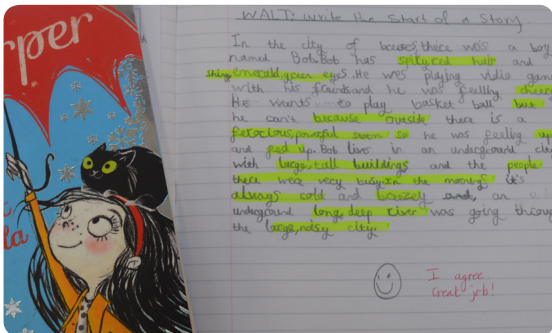 rper
la
WALT: write the start of a Story
In the city of there was a boy
named Bot. Bot has spikyced hair and
shiny emerald,green eyes. He was playing vidio gam
with his friends and he was feeling cheer
He wants to play basket ball but
he can't because outside there is a
ferocious,powerful storm so he was feeling up
and feed up. Bot lives in an underground city
with large,tall buildings and the people
there were very busy. In the mornings it's
always cold and and an
underground long,deep river was going throug
the large,noisy city.
I agree.
Great job!